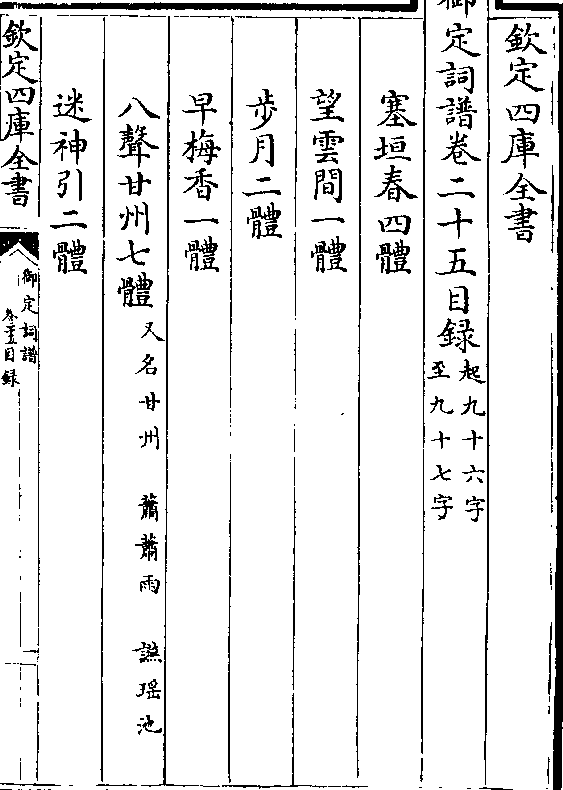 欽定四庫全書
御定詞譜卷二十五目録起九十六字
至九十七字
塞垣春四體
望雲間一體
步月二體
早梅香一體
八聲甘州七體又名甘州 蕭蕭雨 讌瑶池
迷神引二體
欽定四庫全書
御定詞譜
卷二十五目録